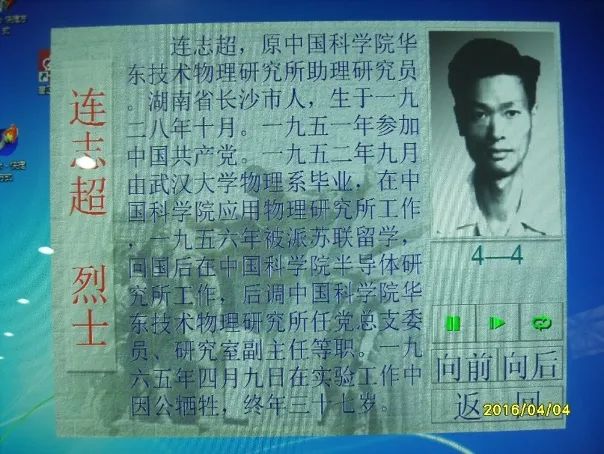 连志超 烈士
连志超，原中国科学院华
东技术物理研究所助理研究员
。湖南省长沙市人，生于一九
二八年十月。一九五一年参加
中国共产党。一九五二年九月
由武汉大学物理系毕业，在中
国科学院应用物理研究所工作
，一九五六年被派苏联留学，
回国后在中国科学院半导体研
究所工作，后调中国科学院华
东技术物理研究所任党总支委
员、研究室副主任等职。一九
六五年四月九日在实验工作中
因公牺牲，终年三十七岁。
4—4
向前 向后
返 回
2016/04/04